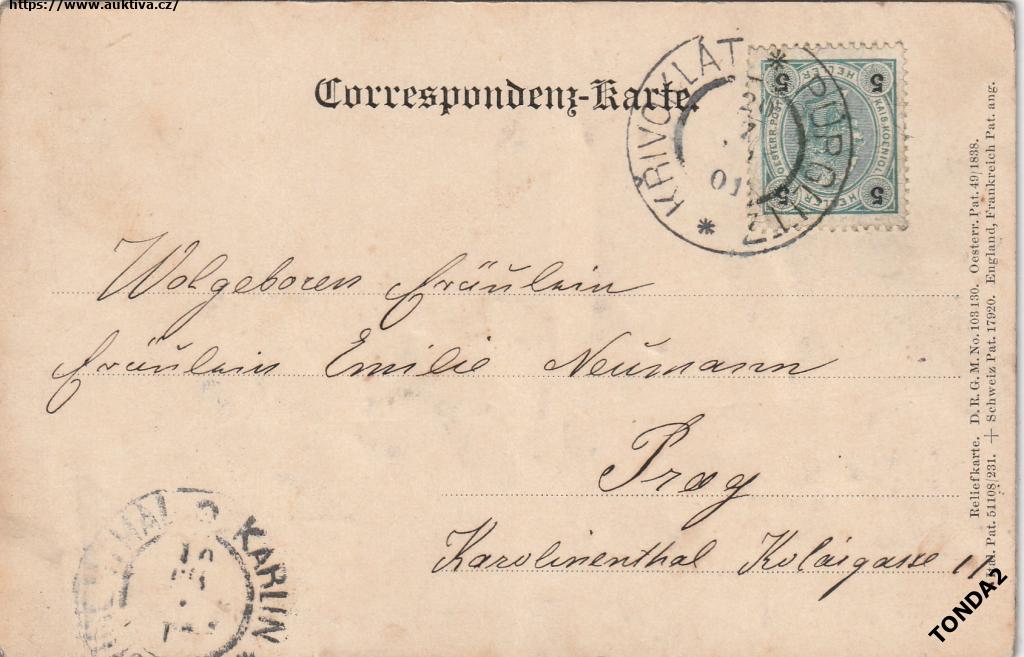 https://www.auktiva.cz/
Correspondenz-Karte.
KŘIVOKLÁT * PÜRGLITZ *
01
5 HELLER 5
KAIS. KOENIGL.
OESTERR. POST
5 HELLER 5
Wolgeboren Fräulein
Fräulein Emilie Neumann
Prag
Karolinenthal Kolárgasse 11
KARLÍN
Reliefkarte. D. R. G. M. No. 103130. Oesterr. Pat. 49/1838.
Ital. Pat. 51108/231. + Schweiz Pat. 17920. England, Frankreich Pat. ang.
TONDA2